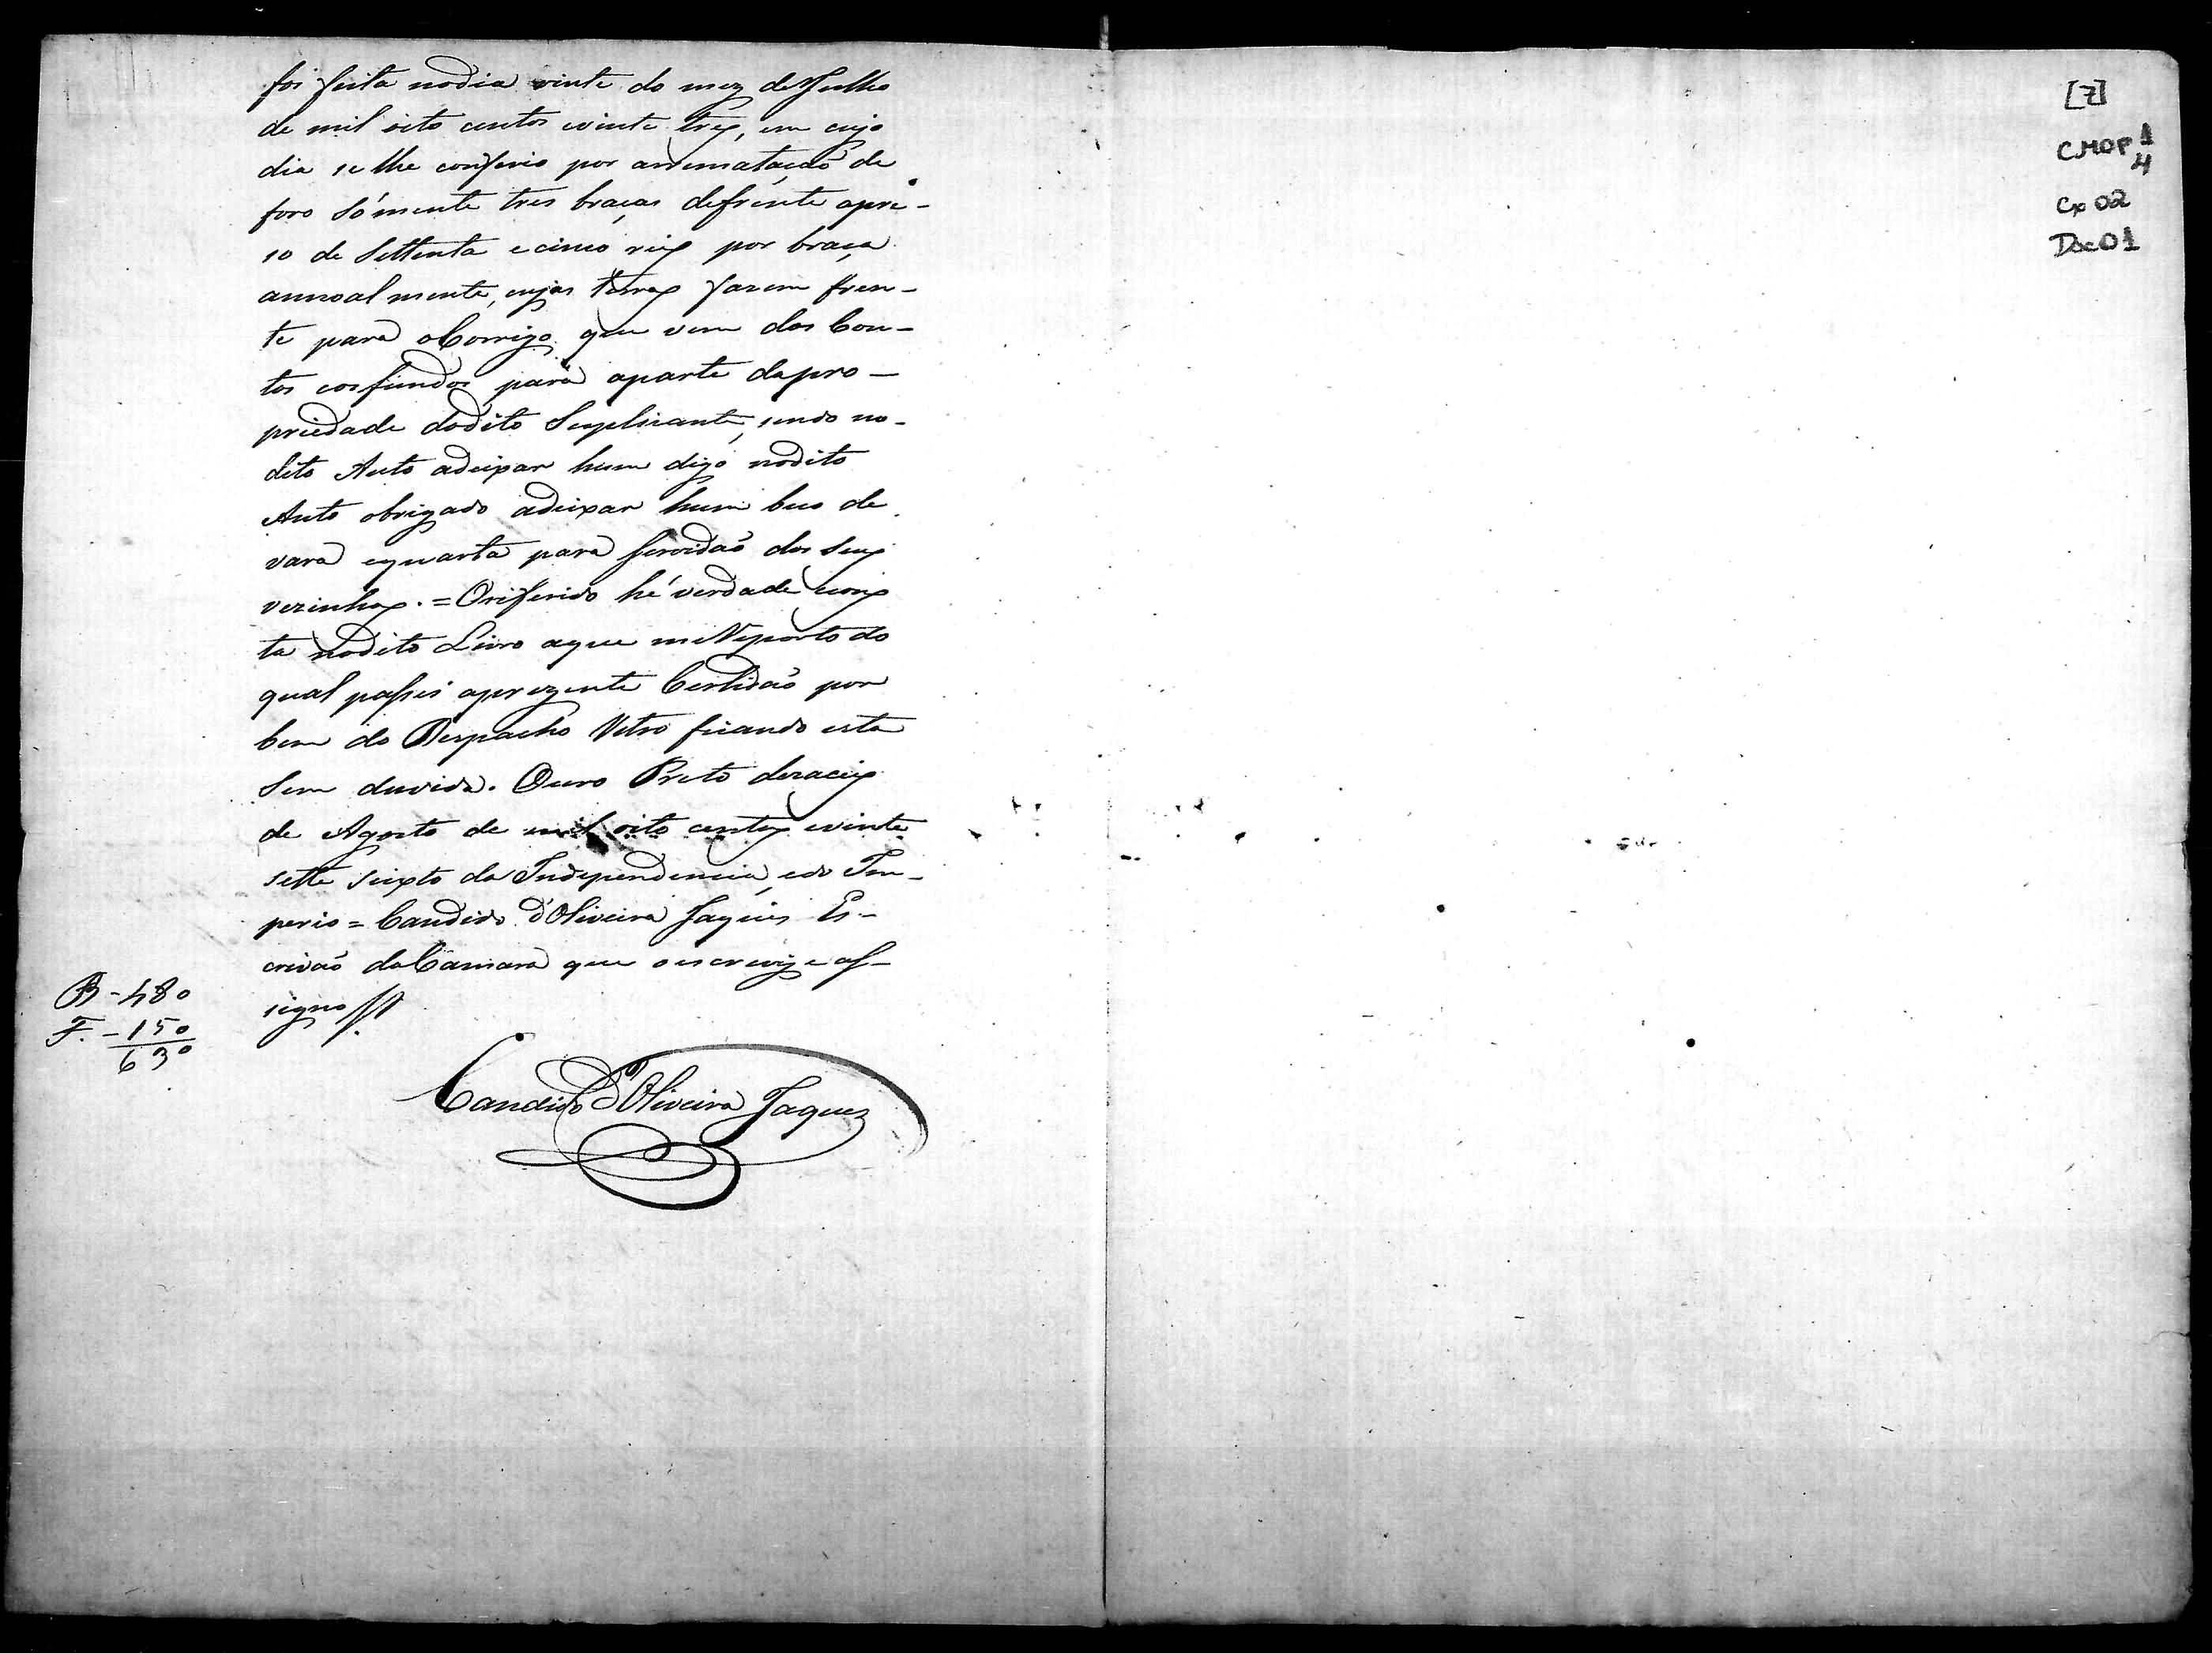 foi feita nodia vinte do mez de Julho
de mil oito centos evinte trez, em cujo
dia se lhe conferio por arremataçaõ de
foro sómente tres braças defrente apre-
so de Settenta ecinco reis por braça
annoalmente, cujas terras fazem fren-
te para oCorrigo que vem dos Con-
tos eosfundos para aparte dapro-
priedade dodito Suplicante, sendo no-
dito Auto adeixar hum digo nodito
Auto obrigado adeixar hum beco de
vara equarta para servidaõ dos seus
vezinhos. = Oriferido hé verdade econs
ta nodito Livro aque meReporto do
qual passei aprezente Certidaõ por
bem do Despacho Retro ficando esta
Sem duvida. Ouro Preto dezaceis
de Agosto de mil oito centos evinte
sette seixto da Independencia, edo Im-
perio = Candido d'Oliveira Jaques Es-
crivaõ daCamara que oescrevy e as-
signo
Candido d'Oliveira Jaques
R - 480
F. - 150
630
[7]
CMOP 1
4
Cx 02
Doc 01